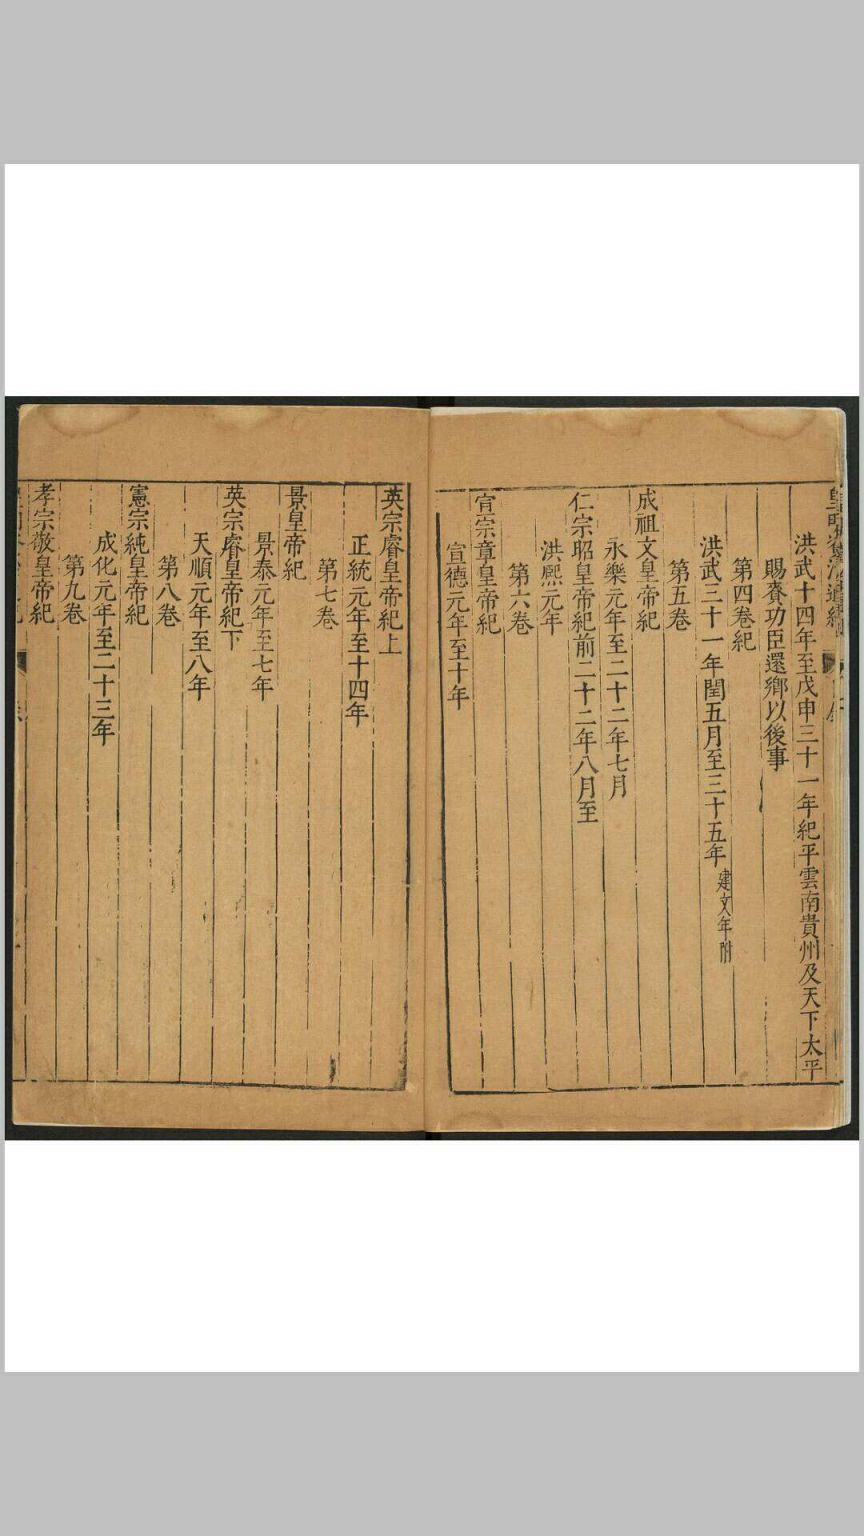 洪武十四年至戊申三十一年紀平雲南貴州及天下太平
賜賚功臣還鄉以後事
第四卷紀
洪武三十一年閏五月至三十五年建文年附
第五卷
成祖文皇帝紀
永樂元年至二十二年七月
仁宗昭皇帝紀前二十二年八月至
洪熈元年
第六卷
宣宗章皇帝紀
宣德元年至十年
英宗睿皇帝紀上
正統元年至十四年
第七卷
景皇帝紀
景泰元年至七年
英宗睿皇帝紀下
天順元年至八年
第八卷
憲宗純皇帝紀
成化元年至二十三年
第九卷
孝宗敬皇帝紀